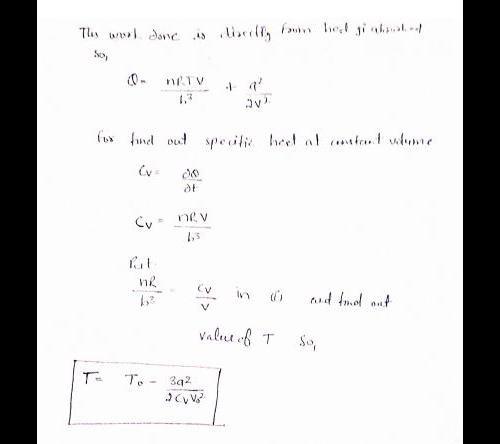 The work done is directly from heat absorbed
So,
Q = nRTV/b³ + a²/2V²
For find out specific heat at constant volume
Cv = ∂Q/∂t
Cv = nRV/b³
Put
nR/b³ = Cv/V in (i) and find out
value of T So,
T = T₀ - 3a²/2CvV₀²